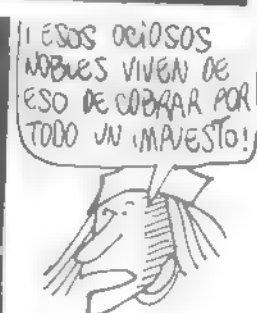 ¡ESOS OCIOSOS
NOBLES VIVEN DE
ESO DE COBRAR POR
TODO UN IMPUESTO!